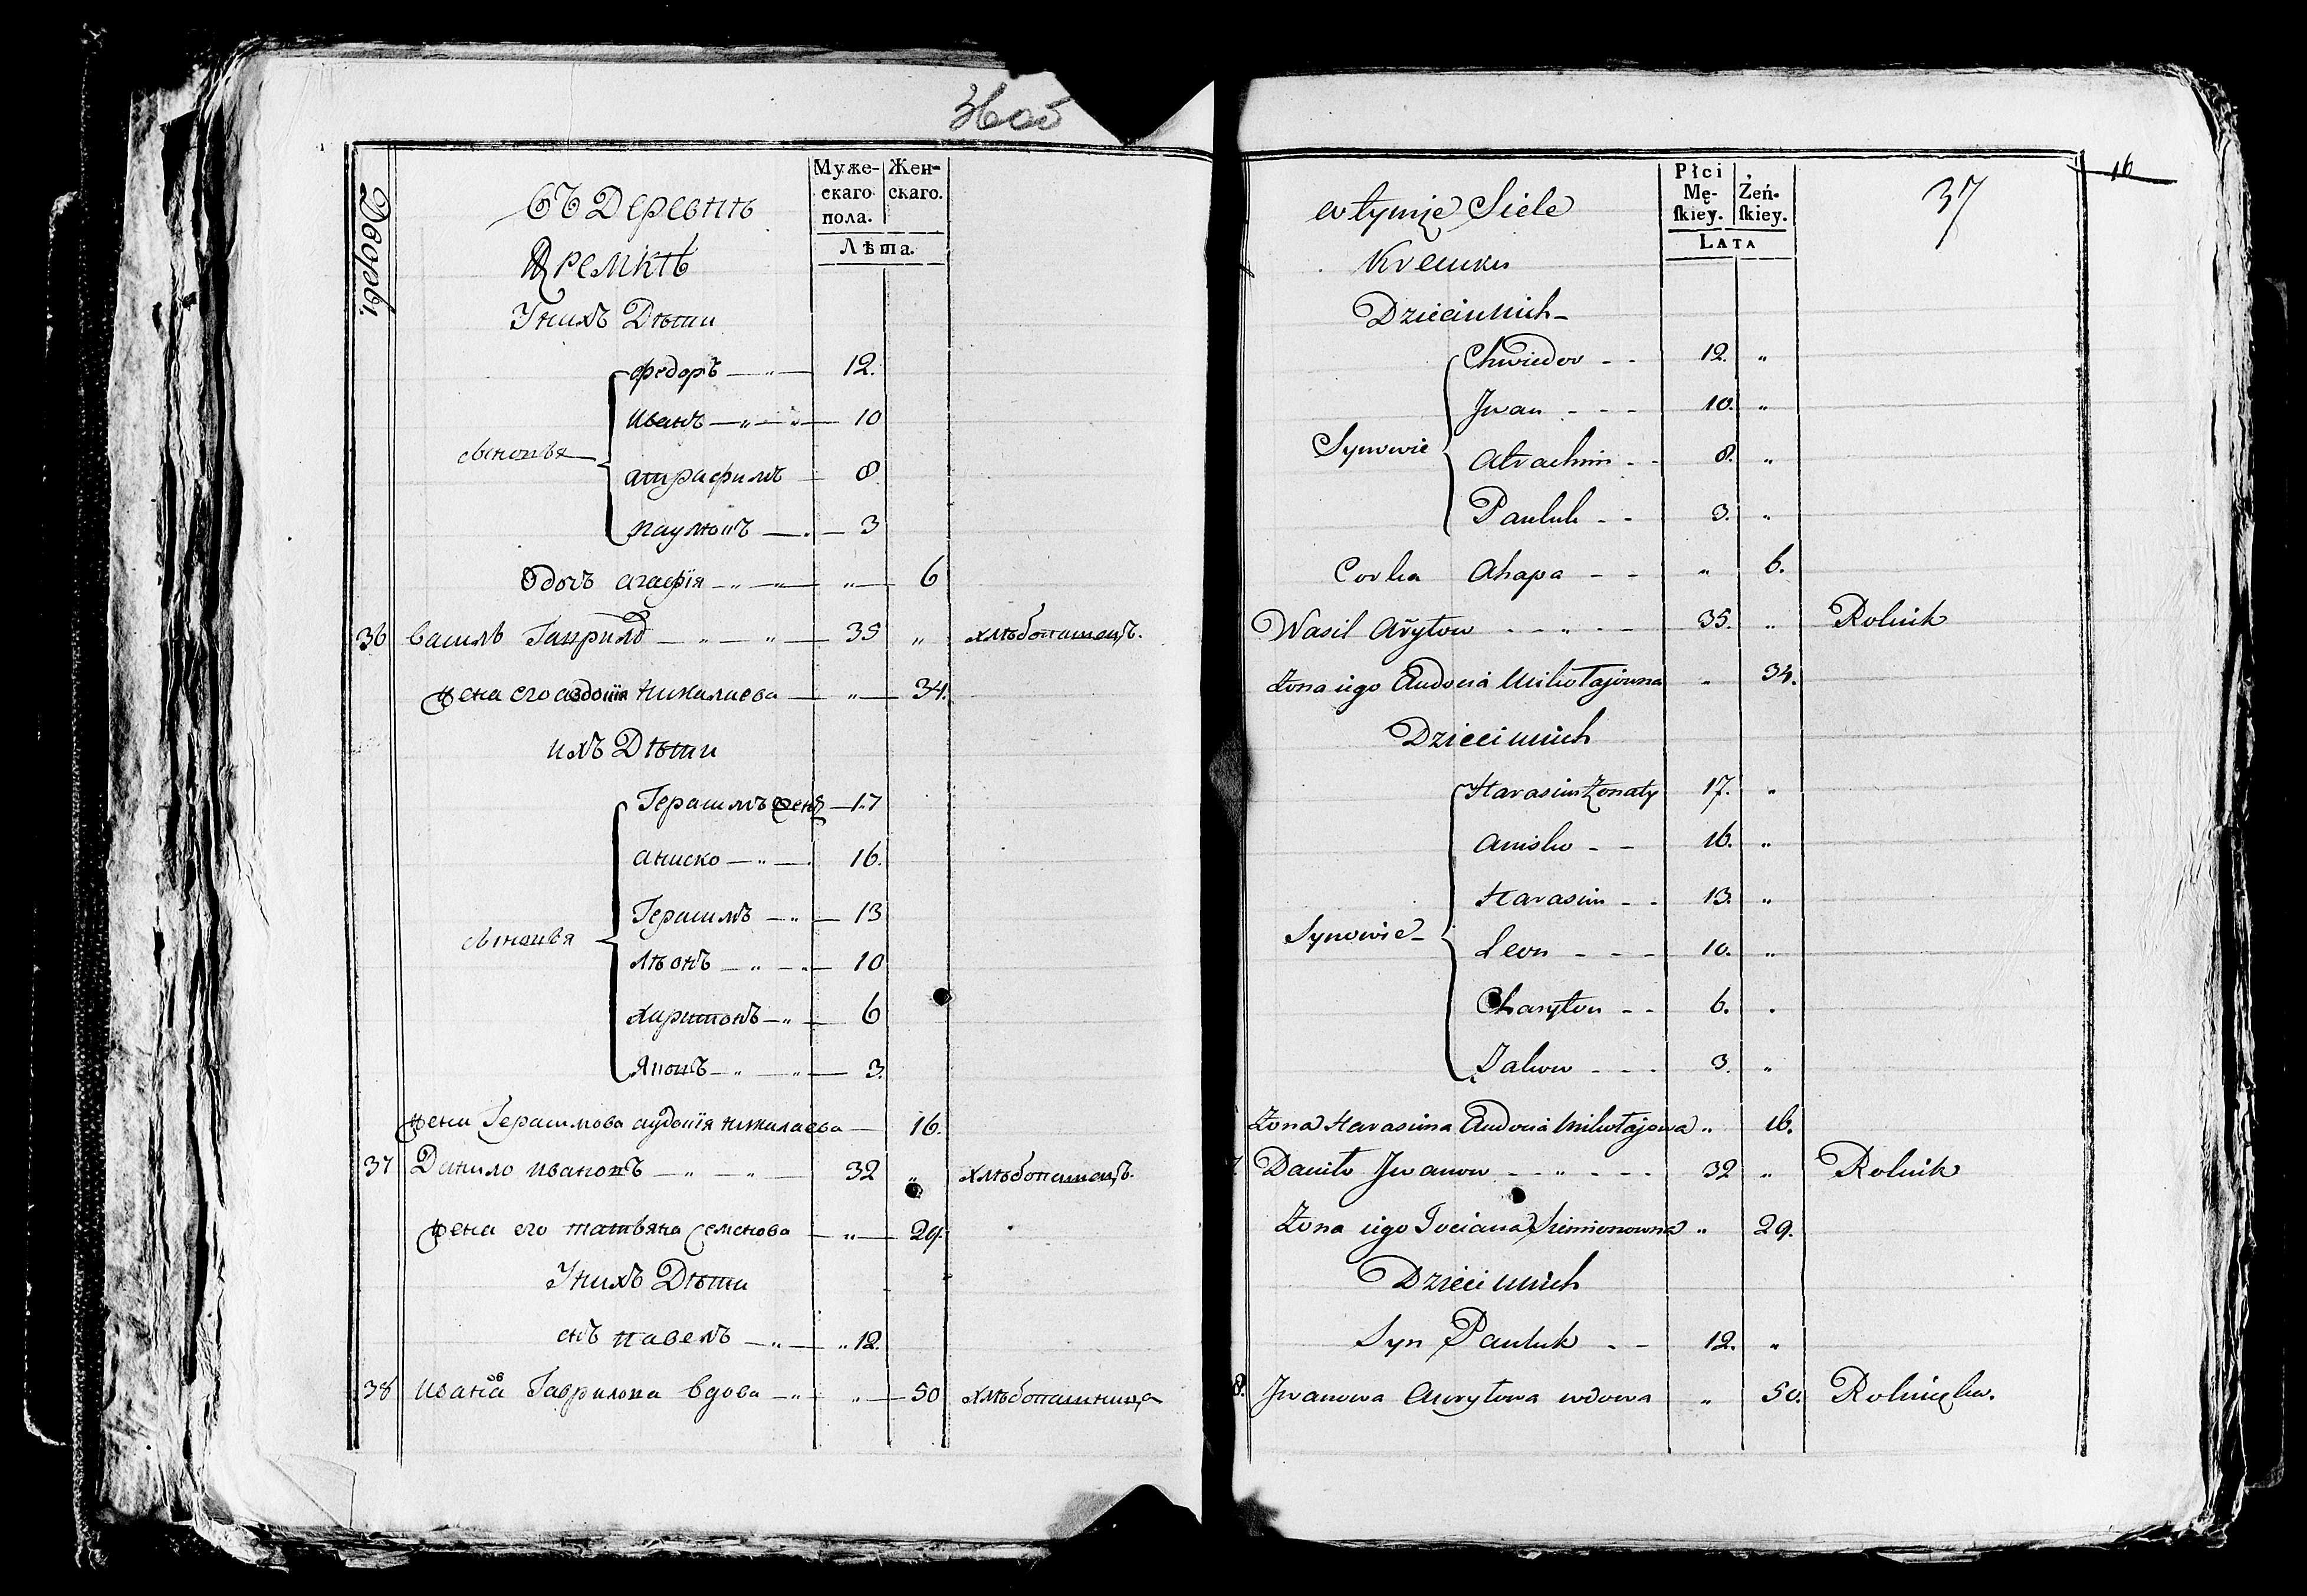 36об
Дворы.
Муже-
скаго
пола.
Жен-
скаго.
Лѣта.
Въ Деревнѣ
Кремкѣ
У нихъ Дѣти
сыновья
Федоръ — 12.
Иванъ — 10
атрафимъ — 8
3
дочь агафія — „ — 6
36 Василь — „ — 35 „ хлѣбопашецъ.
жена его авдотія Николаева — „ — 34.
ихъ Дѣти
сыновья
Герасимъ жен — 17
аниско — 16.
Герасимъ — 13
Лѣонъ — 10
Харитонъ — 6
3.
жена Герасимова аудотія николаева — 16.
37 Данило Ивановъ — „ — 32 „ хлѣбопашецъ.
жена его татьяна Семенова — „ — 29.
У нихъ Дѣти
сынъ павелъ — 12.
38 Иванова Гаврилова вдова — „ — 50 хлѣбопашница
16
37
Płci
Mę-
ſkiey.
Żeń-
ſkiey.
LATA
w tymże Siele
Kremku
Dzieci u nich
Synowie
Chwiedor - - 12. „
Jwan - - - 10. „
Atrachim - - 8. „
Pauluk - - 3. „
Corka Ahapa - - „ 6.
Wasil - - „ - - 35. „ Rolnik
Żona iego Audocia Mikołajowna „ 34.
Dzieci u nich
Synowie
Harasim Żonaty 17. „
Anisko - - 16. „
Harasim - - 13. „
Leon - - - 10. „
Charyton - - 6. „
3. „
Żona Harasima Audocia Mikołajowa „ 16.
Daniło Jwanow - - „ - - - 32 „ Rolnik
Żona iego Tociana Siemionowna „ 29.
Dzieci u nich
Syn Pauluk - - 12. „
8. Jwanowa Awrytowa wdowa „ 50. Rolniczka.